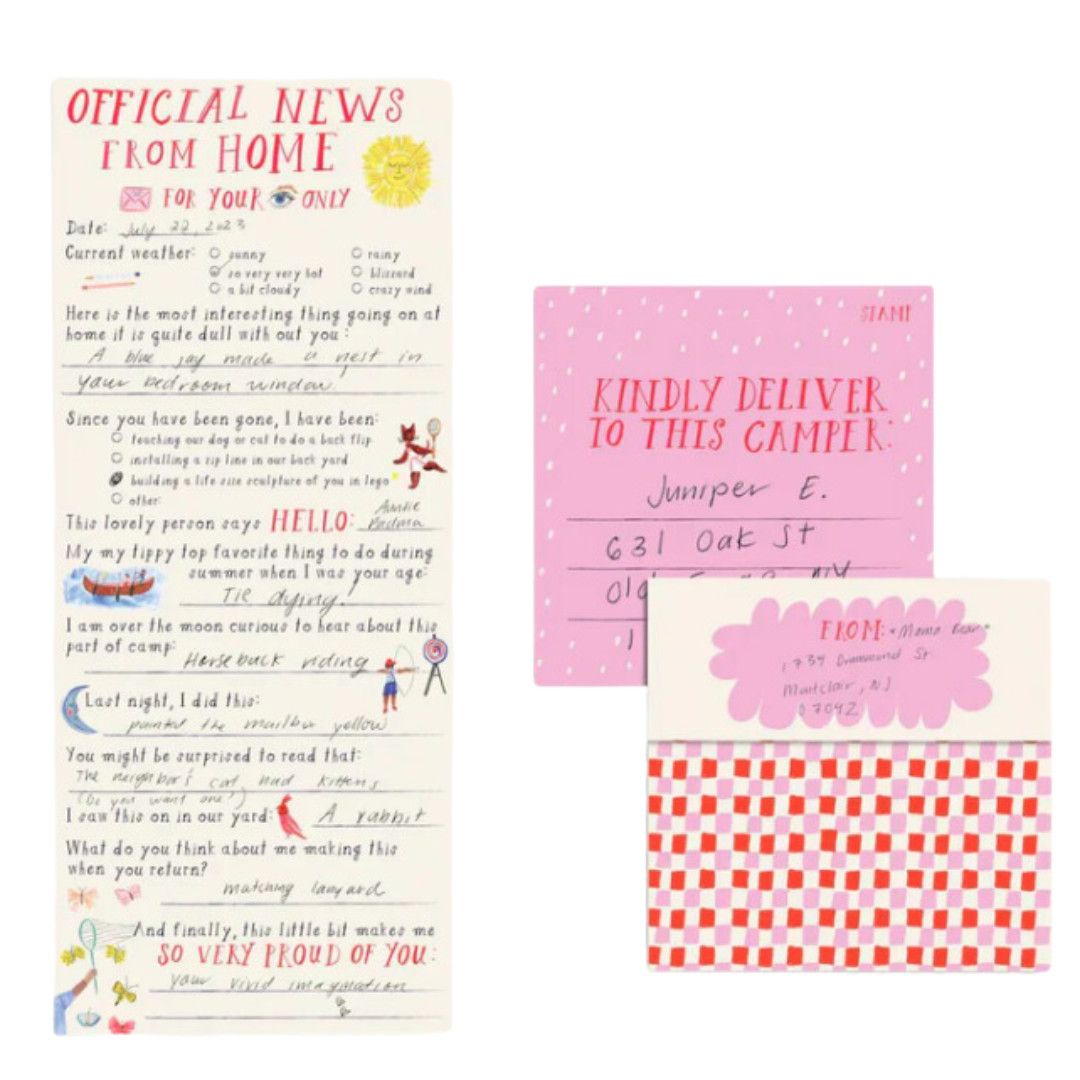 OFFICIAL NEWS
FROM HOME
FOR YOUR ONLY
Date: July 22, 2023
Current weather: sunny rainy
so very very hot blizzard
a bit cloudy crazy wind
Here is the most interesting thing going on at
home it is quite dull with out you:
A blue jay made a nest in
your bedroom window!
Since you have been gone, I have been:
teaching our dog or cat to do a back flip
installing a zip line in our back yard
building a life size sculpture of you in lego
other:
This lovely person says HELLO: Auntie
Padma
My my tippy top favorite thing to do during
summer when I was your age:
Tie dying!
I am over the moon curious to hear about this
part of camp:
Horseback riding
Last night, I did this:
painted the mailbox yellow
You might be surprised to read that:
The neighbor's cat had kittens
(Do you want one?)
I saw this on in our yard: A rabbit
What do you think about me making this
when you return?
matching lanyard
And finally, this little bit makes me
SO VERY PROUD OF YOU:
your vivid imagination
STAMP
KINDLY DELIVER
TO THIS CAMPER:
Juniper E.
631 Oak St
Old NY
1
FROM: "Mama Bear"
1739 Drummond St.
Montclair, NJ
07042